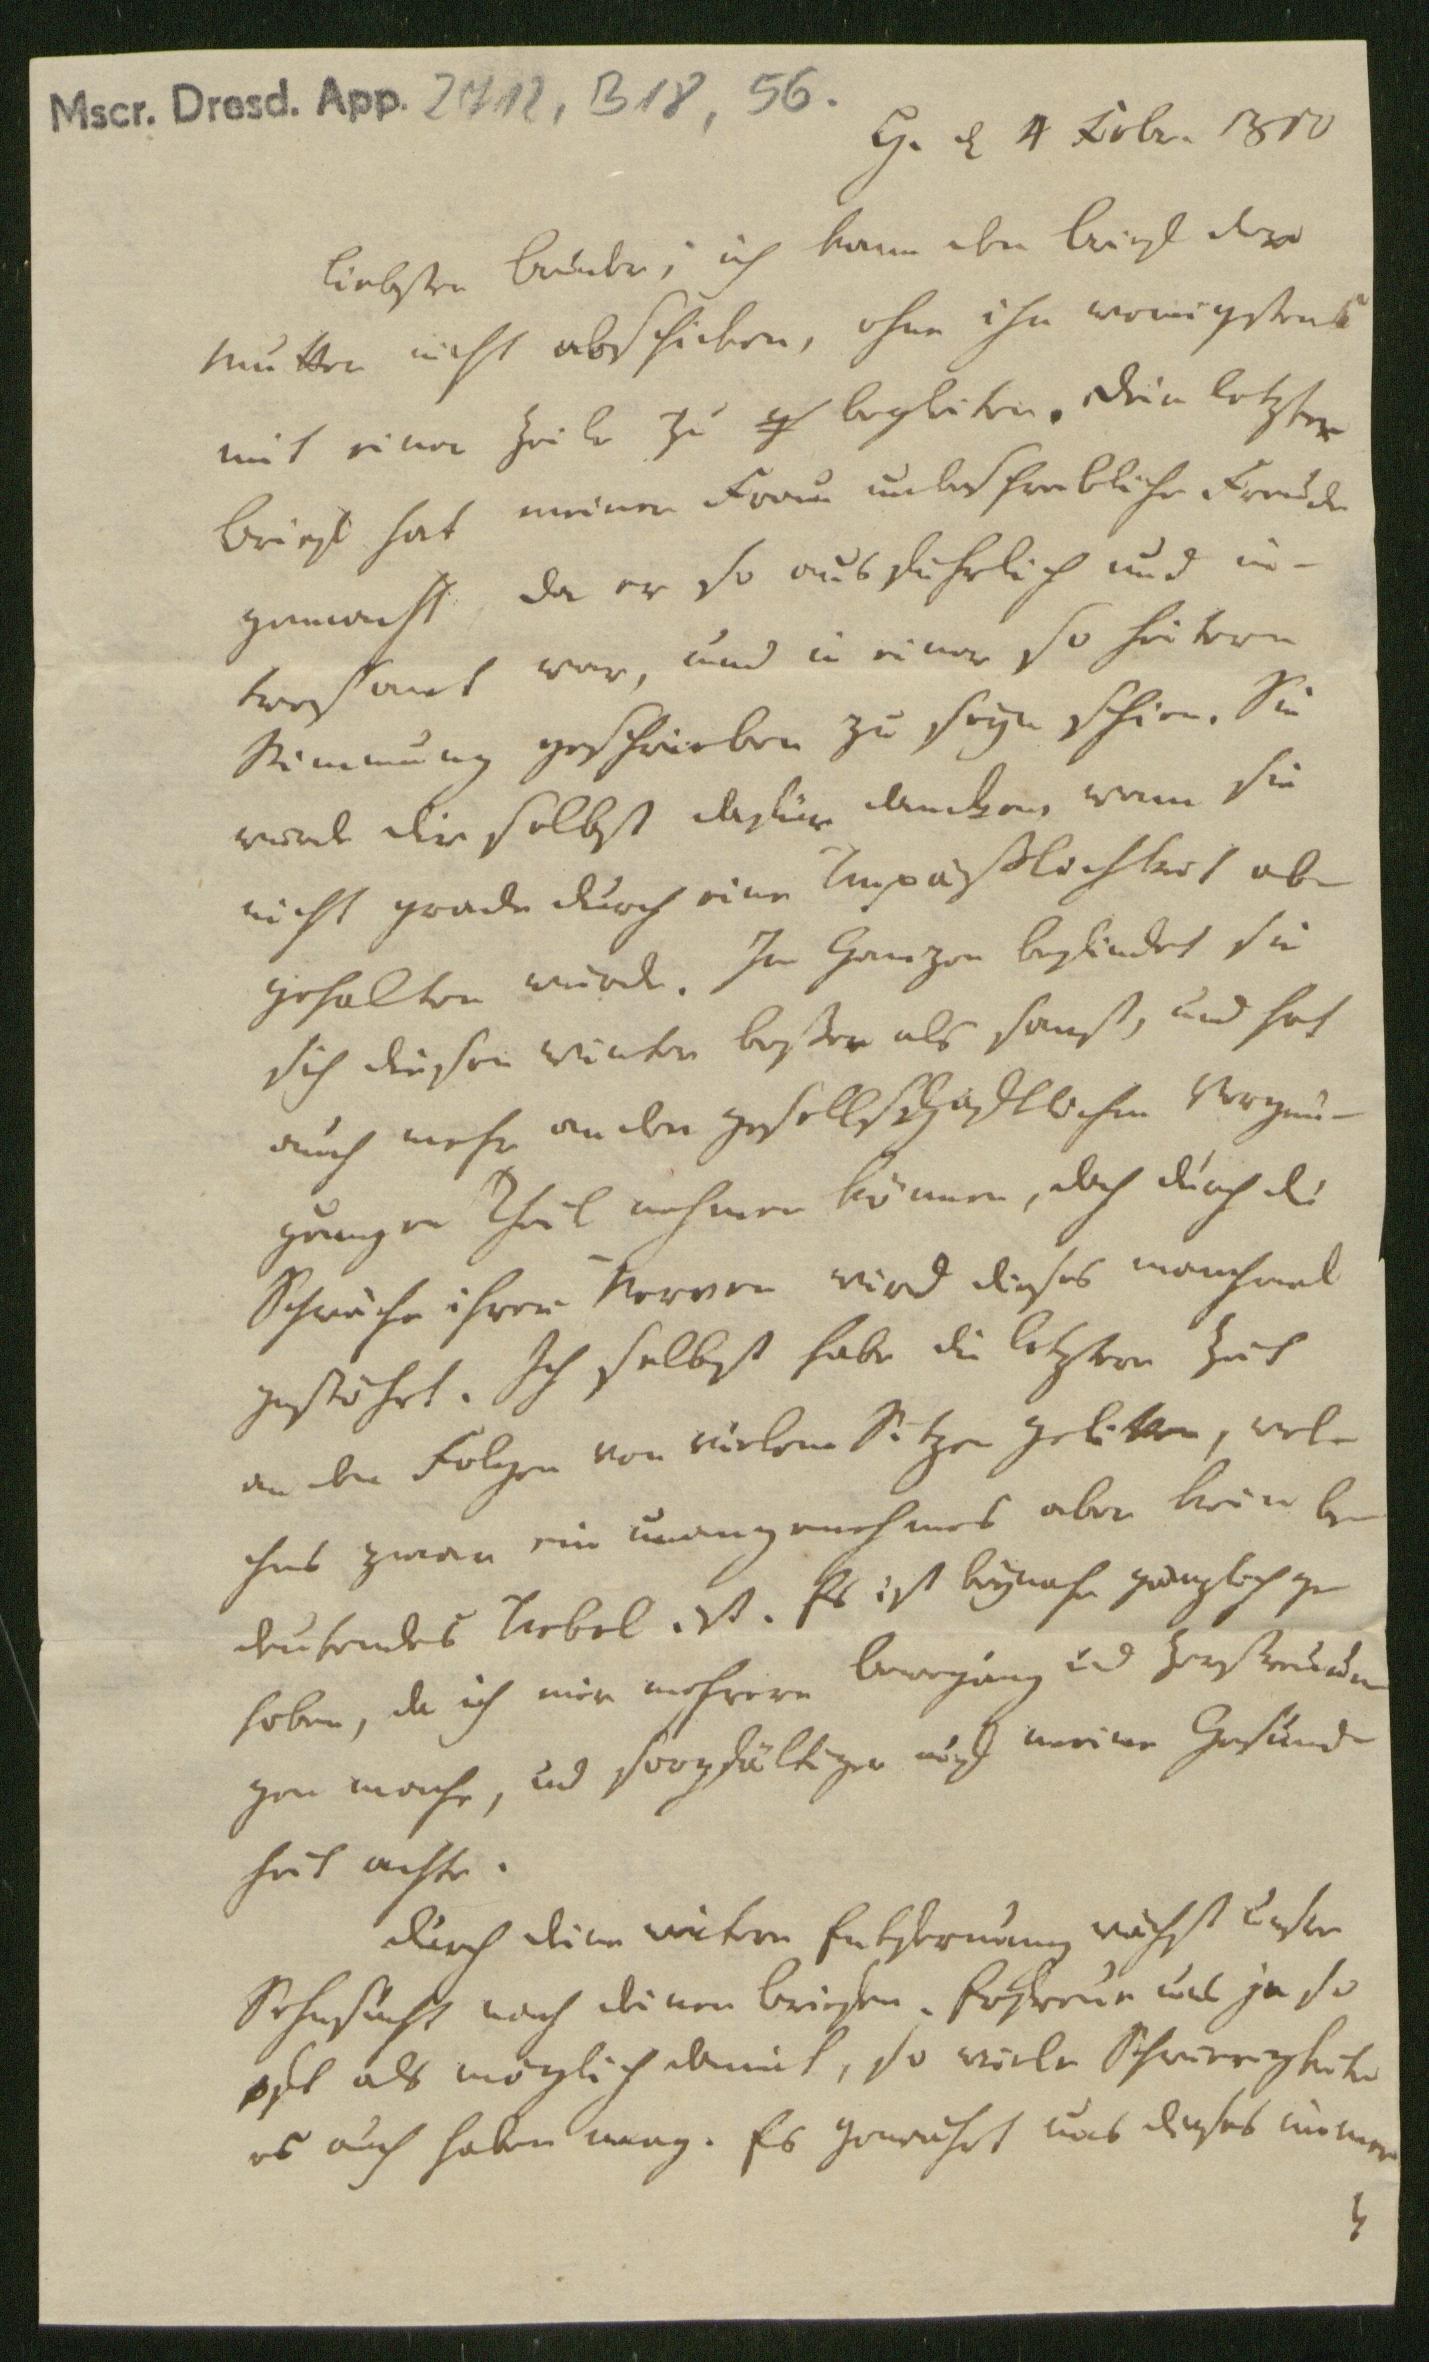 Mscr. Dresd. App. 2712, B18, 56.
H. d 4 Febr. 1810
liebster Bruder; ich kann den Brief der
Mutter nicht abschicken, ohne ihn wenigstens
mit einer Zeile zu begleiten. Dein letzter
Brief hat meiner Frau unbeschreibliche Freude
gemacht da er so ausführlich und in-
tressant war, und in einer so heitern
Stimmung geschrieben zu seyn schien. Sie
würde dir selbst dafür dancken, wenn sie
nicht grade durch eine Unpäßlichkeit ab
gehalten würde. Im Ganzen befindet sie
sich diesen Winter besser als sonst, und hat
auch mehr an den gesellschaftlichen Vergnü-
gungen Theil nehmen können, doch durch die
Schwäche ihrer Nerven wird dieses manchmal
gestöhrt. Ich selbst habe die letztere Zeit
an den Folgen von vielem Sitzen gelitten, wel-
ches zwar ein unangenehmes aber kein be
deutendes Uebel ist. Es ist beynahe gänzlich ge
hoben, da ich mir mehrere Bewegung und Zerstreuun
gen mache, und sorgfältiger auf meine Gesund-
heit achte.
Durch deine weitere Entfernung wächst unsre
Sehnsucht nach deinen Briefen. Erfreue uns ja so
oft als möglich damit, so viele Schwierigkeiten
es auch haben mag. Es gewährt uns dieses immer